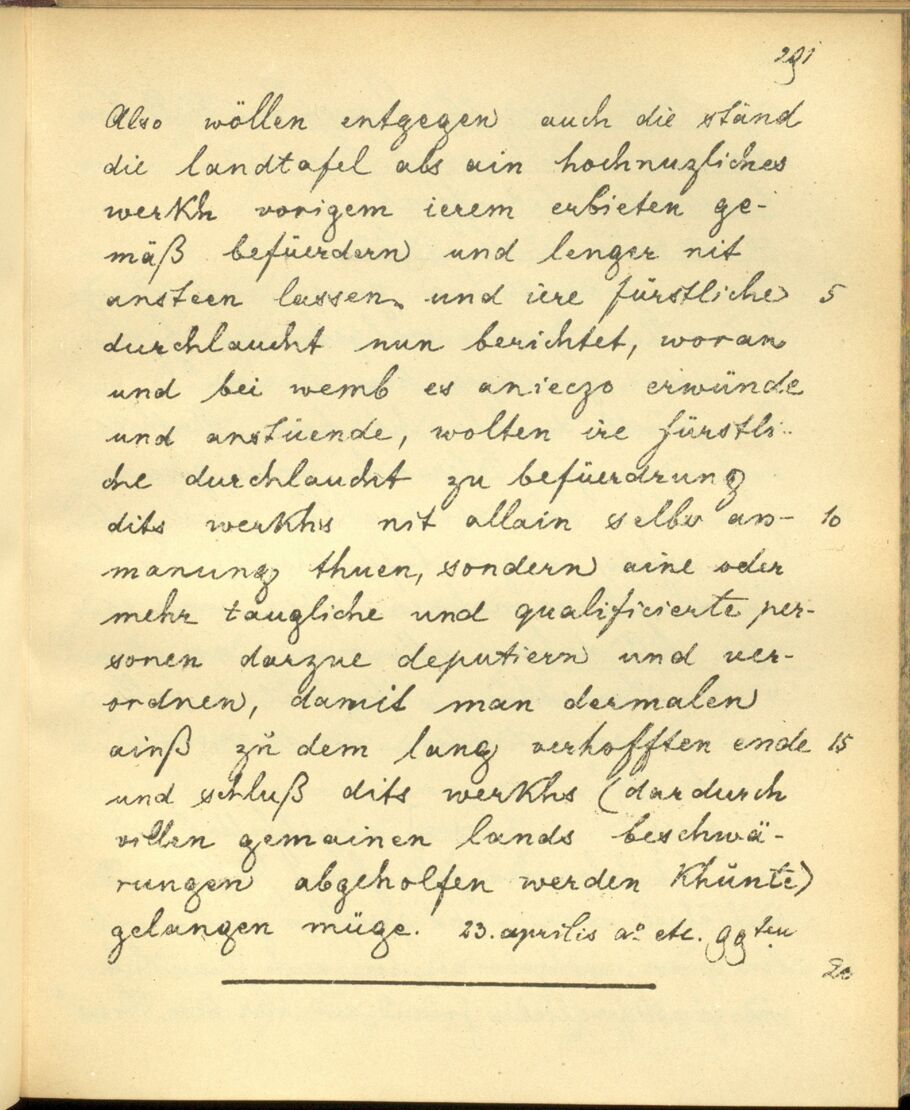 291
Also wöllen entgegen auch die ständ
die landtafel als ain hochnuzliches
werkh vorigem ierem erbieten ge-
mäß befüerdern und lenger nit
ansteen lassen und iere fürstliche 5
durchlaucht nun berichtet, woran
und bei wemb es aniezo erwünde
und anstüende, wolten ire fürstli-
che durchlaucht zu befüerdrung
dits werkhs nit allain selbs an- 10
manung thuen, sondern aine oder
mehr taugliche und qualificierte per-
sonen darzue deputiern und ver-
ordnen, damit man dermalen
ainß zu dem lang verhofften ende 15
und schluß dits werkhs (dardurch
villen gemainen lands beschwä-
rungen abgeholfen werden khünte)
gelangen müge. 23. aprilis aº etc. 99ten
20